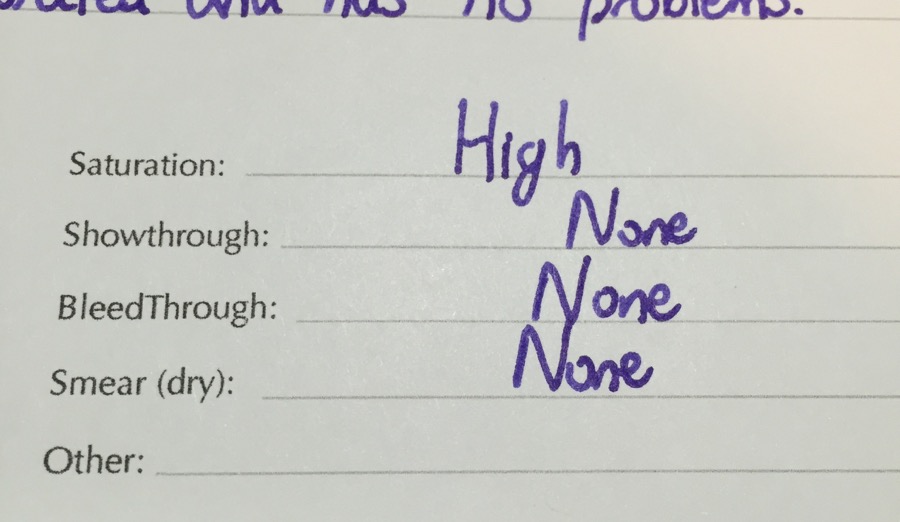 and has no problems.
Saturation: High
Showthrough: None
BleedThrough: None
Smear (dry): None
Other: